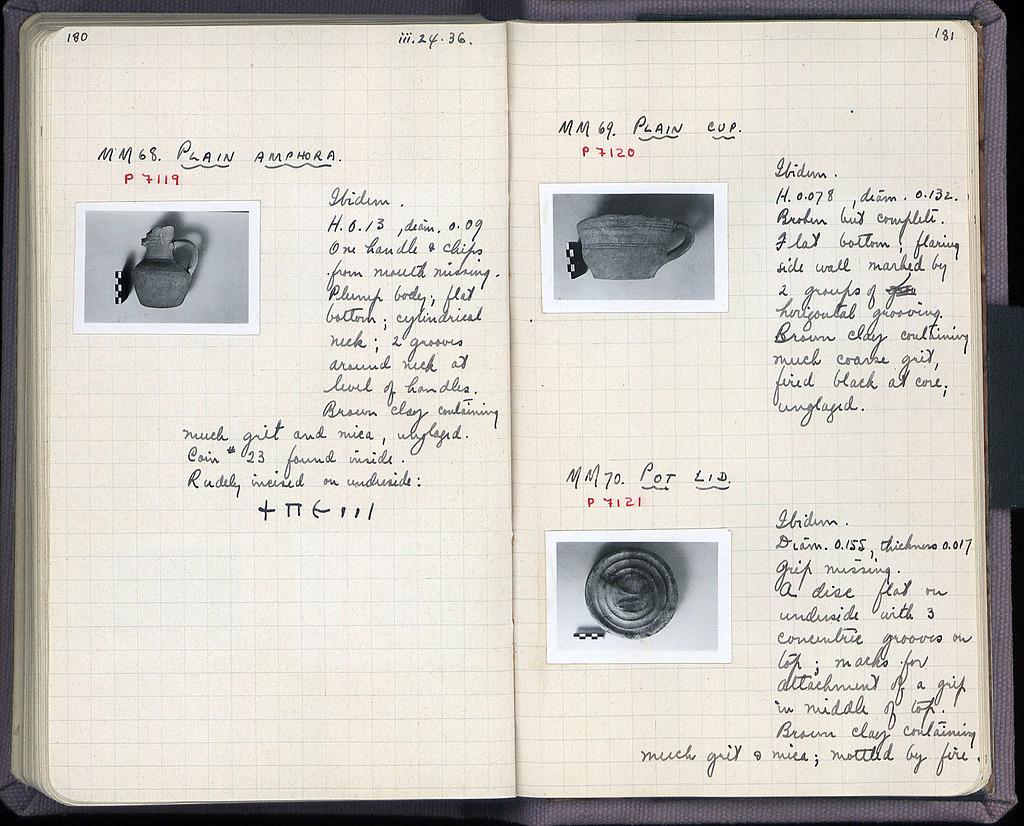 180
iii.24.36.
MM 68. PLAIN AMPHORA.
P 7119
Ibidem.
H. 0.13, diam. 0.09
One handle & chips
from mouth missing.
Plump body; flat
bottom; cylindrical
neck; 2 grooves
around neck at
level of handles.
Brown clay containing
much grit and mica, unglazed.
Coin # 23 found inside.
Rudely incised on underside:
181
MM 69. PLAIN CUP.
P 7120
Ibidem.
H. 0.078, diam. 0.132.
Broken but complete.
Flat bottom; flaring
side wall marked by
2 groups of
horizontal grooving.
Brown clay containing
much coarse grit,
fired black at core;
unglazed.
MM 70. POT LID.
P 7121
Ibidem.
Diam. 0.155, thickness 0.017
Grip missing.
A disc flat on
underside with 3
concentric grooves on
top; marks for
attachment of a grip
in middle of top.
Brown clay containing
much grit & mica; mottled by fire.